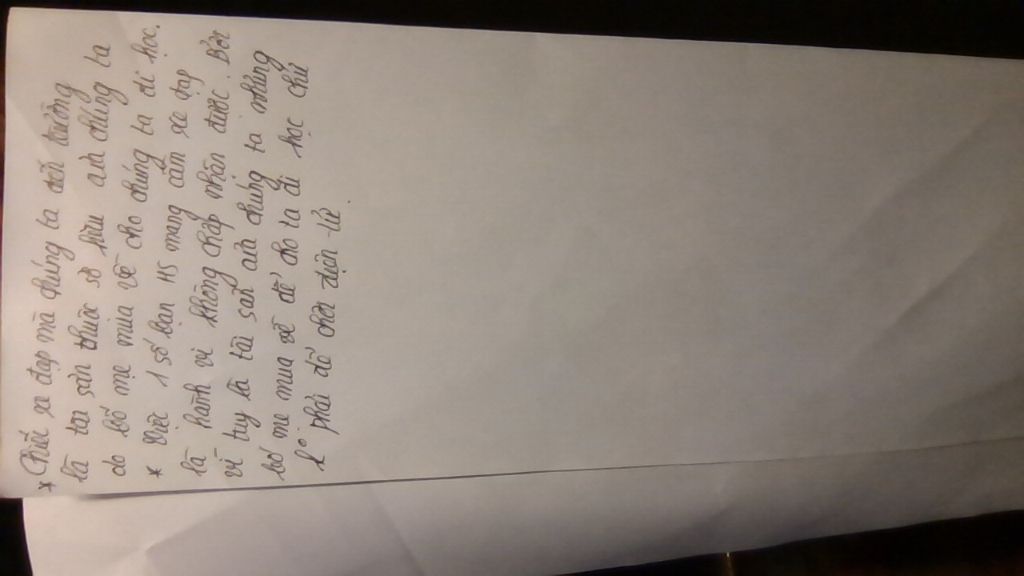 * Chiếc xe đạp mà chúng ta đến trường
là tài sản thuộc sở hữu của chúng ta
do bố mẹ mua về cho chúng ta đi học.
* Việc 1 số bạn HS mang cầm xe đạp
là hành vi không chấp nhận được. Bởi
vì tuy là tài sản của chúng ta nhưng
bố mẹ mua về để cho ta đi học chứ
k° phải để chơi điện tử.